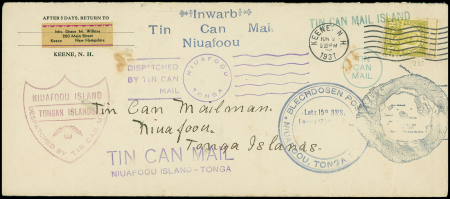 AFTER 5 DAYS, RETURN TO
Miss Grace M. Wilkins
Main Street
Keene New Hampshire
KEENE, N. H.
Inwarb
Tin Can Mail
Niuafoou
TIN CAN MAIL ISLAND
KEENE, N.H.
1931
DISPATCHED
BY TIN CAN
MAIL
NIUAFOOU
TONGA
CAN
MAIL
NIUAFOOU ISLAND
TONGAN ISLANDS
DESPATCHED BY TIN CAN MAIL
Tin Can Mailman.
Niuafoou.
Tonga Islands.
BLECHDOSEN
TONGA
TIN CAN MAIL
NIUAFOOU ISLAND-TONGA